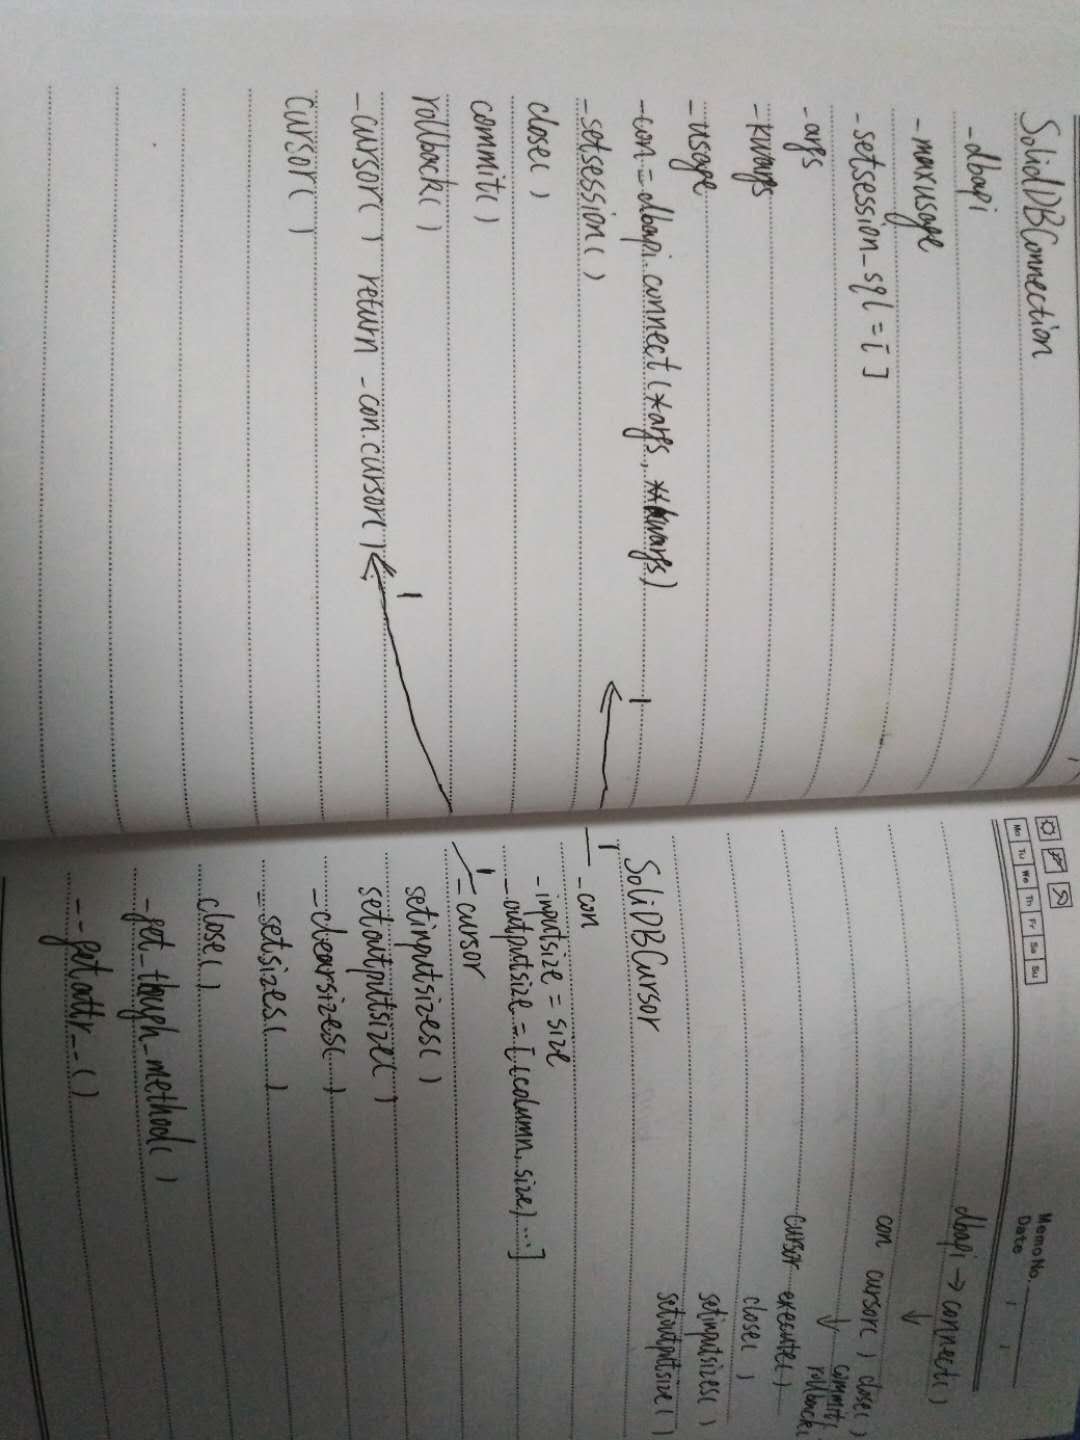 SolidDBConnection
-dbapi
-maxusage
-setsession_sql = [ ]
-args
-kwargs
-usage
-con = dbapi.connect(*args, **kwargs)
-setsession( )
close( )
commit( )
rollback( )
-cursor( ) return -con.cursor( )
cursor( )
1
1
Mo Tu We Th Fr Sa Su
Memo No.
Date / /
dbapi → connect( )
↓
con cursor( ) close( )
↓ commit(
rollback(
cursor execute( )
close( )
setinputsizes( )
setoutputsize( )
SoliDBCursor
1
-con
-inputsize = size
-outputsize = [(column, size) ...]
1
-cursor
setinputsizes( )
setoutputsize( )
-clearsizes( )
-setsizes( )
close( )
-get_tough_method( )
--getattr--( )